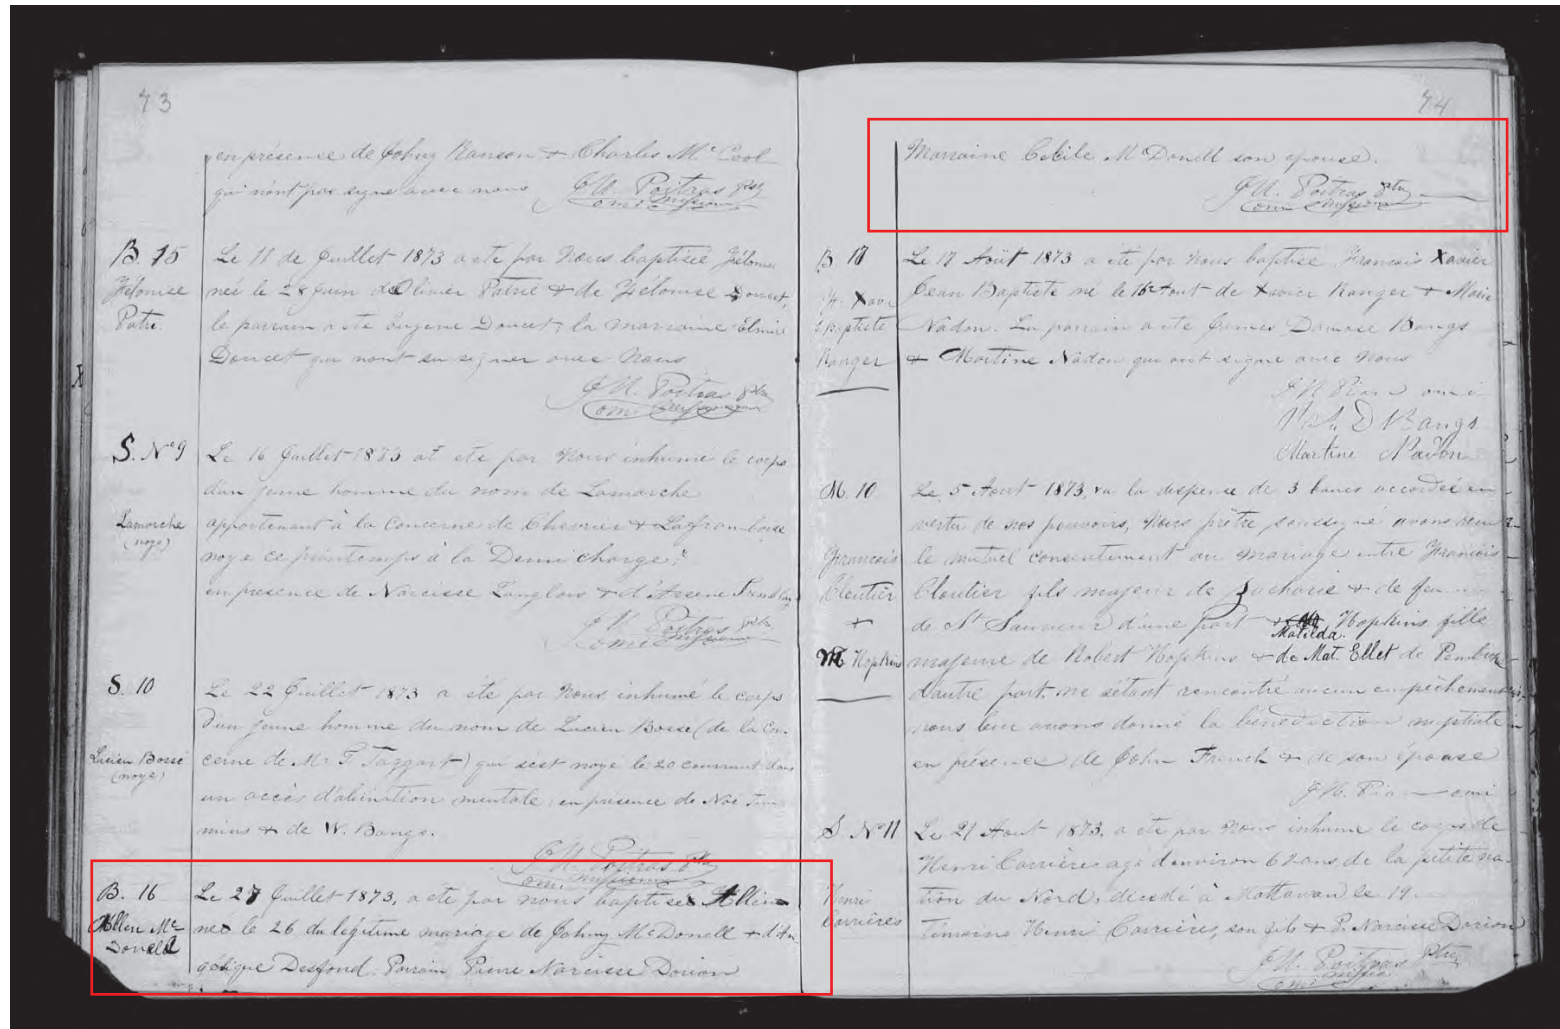 73
en présence de Johny Ranson & Charles McCool
qui n'ont pas signe avec nous J. M. Poitras ptre
omi missionn
B. 15
Zélonise
Patri.
Le 11 de Juillet 1873 a ete par Nous baptisée Zélonise
née le 28 Juin d'Olivier Patrie & de Zélonise Doucet,
le parrain a ete Eugene Doucet, la marraine Elmire
Doucet qui n'ont su signer avec Nous
J. M. Poitras ptre
omi missionn
S. No 9
Lamarche
(noye)
Le 16 Juillet 1873 at ete par Nous inhumé le corps
d'un jeune homme du nom de Lamarche
appartenant à la Concerne de Chevrier & Laframboise
noye ce printemps à la "Demi charge",
en presence de Narcisse Langlois & d'Arsene Tremblay
J. M. Poitras ptre
omi missionn
S. 10
Lucien Bossé
(noye)
Le 22 Juillet 1873 a éte par Nous inhumé le corps
d'un jeune homme du nom de Lucien Bosse (de la Con-
cerne de Mr T. Taggart) qui s'est noyé le 20 courrant dans
un accès d'aliénation mentale, en présence de Noé Tim
mins & de W. Bangs.
J. M. Poitras ptre
omi missionn
B. 16
Allen Mc
Donald
Le 27 Juillet 1873, a ete par nous baptise Allen
né le 26 du légitime mariage de Johny McDonell & d'An
gélique Desfond. Parrain Pierre Narcisse Dorion
74
Marraine Cécile McDonell son epouse.
J. M. Poitras ptre
omi missionn
B 17
F. Xavi
Baptiste
Ranger
Le 17 Août 1873 a été par Nous baptisé Francois Xavier
Jean Baptiste né le 16 Aout de Xavier Ranger & Marie
Nadon. Le parrain a ete James Damase Bangs
& Martine Nadon qui ont signe avec Nous
J. M. Pian omi
D Bangs
Martine Nadon
M. 10
Francois
Cloutier
+
M Hopkins
Le 5 Aout 1873, vu la dispense de 3 bancs accordée en
vertu de nos pouvoirs, Nous prêtre soussigné avons recu
le mutuel consentement au mariage entre Francois
Cloutier fils majeur de Zacharie & de feu
de St Sauveur d'une part & Matilda Hopkins fille
majeure de Robert Hopkins & de Mat. Ellet de Pembroke
d'autre part. ne s'étant rencontré aucun empêchement
nous leur avons donné la bénédiction nuptiale
en présence de John French & de son épouse
J. M. Pian omi
S. No 11
Henri
Carrières
Le 21 Aout 1873, a ete par Nous inhumé le corps de
Henri Carrières agé d'environ 62 ans de la petite na-
tion du Nord, décédé à Mattawan le 19.
Temoins Henri Carrières, son fils & P. Narcisse Dorion
J. M. Poitras ptre
omi missio